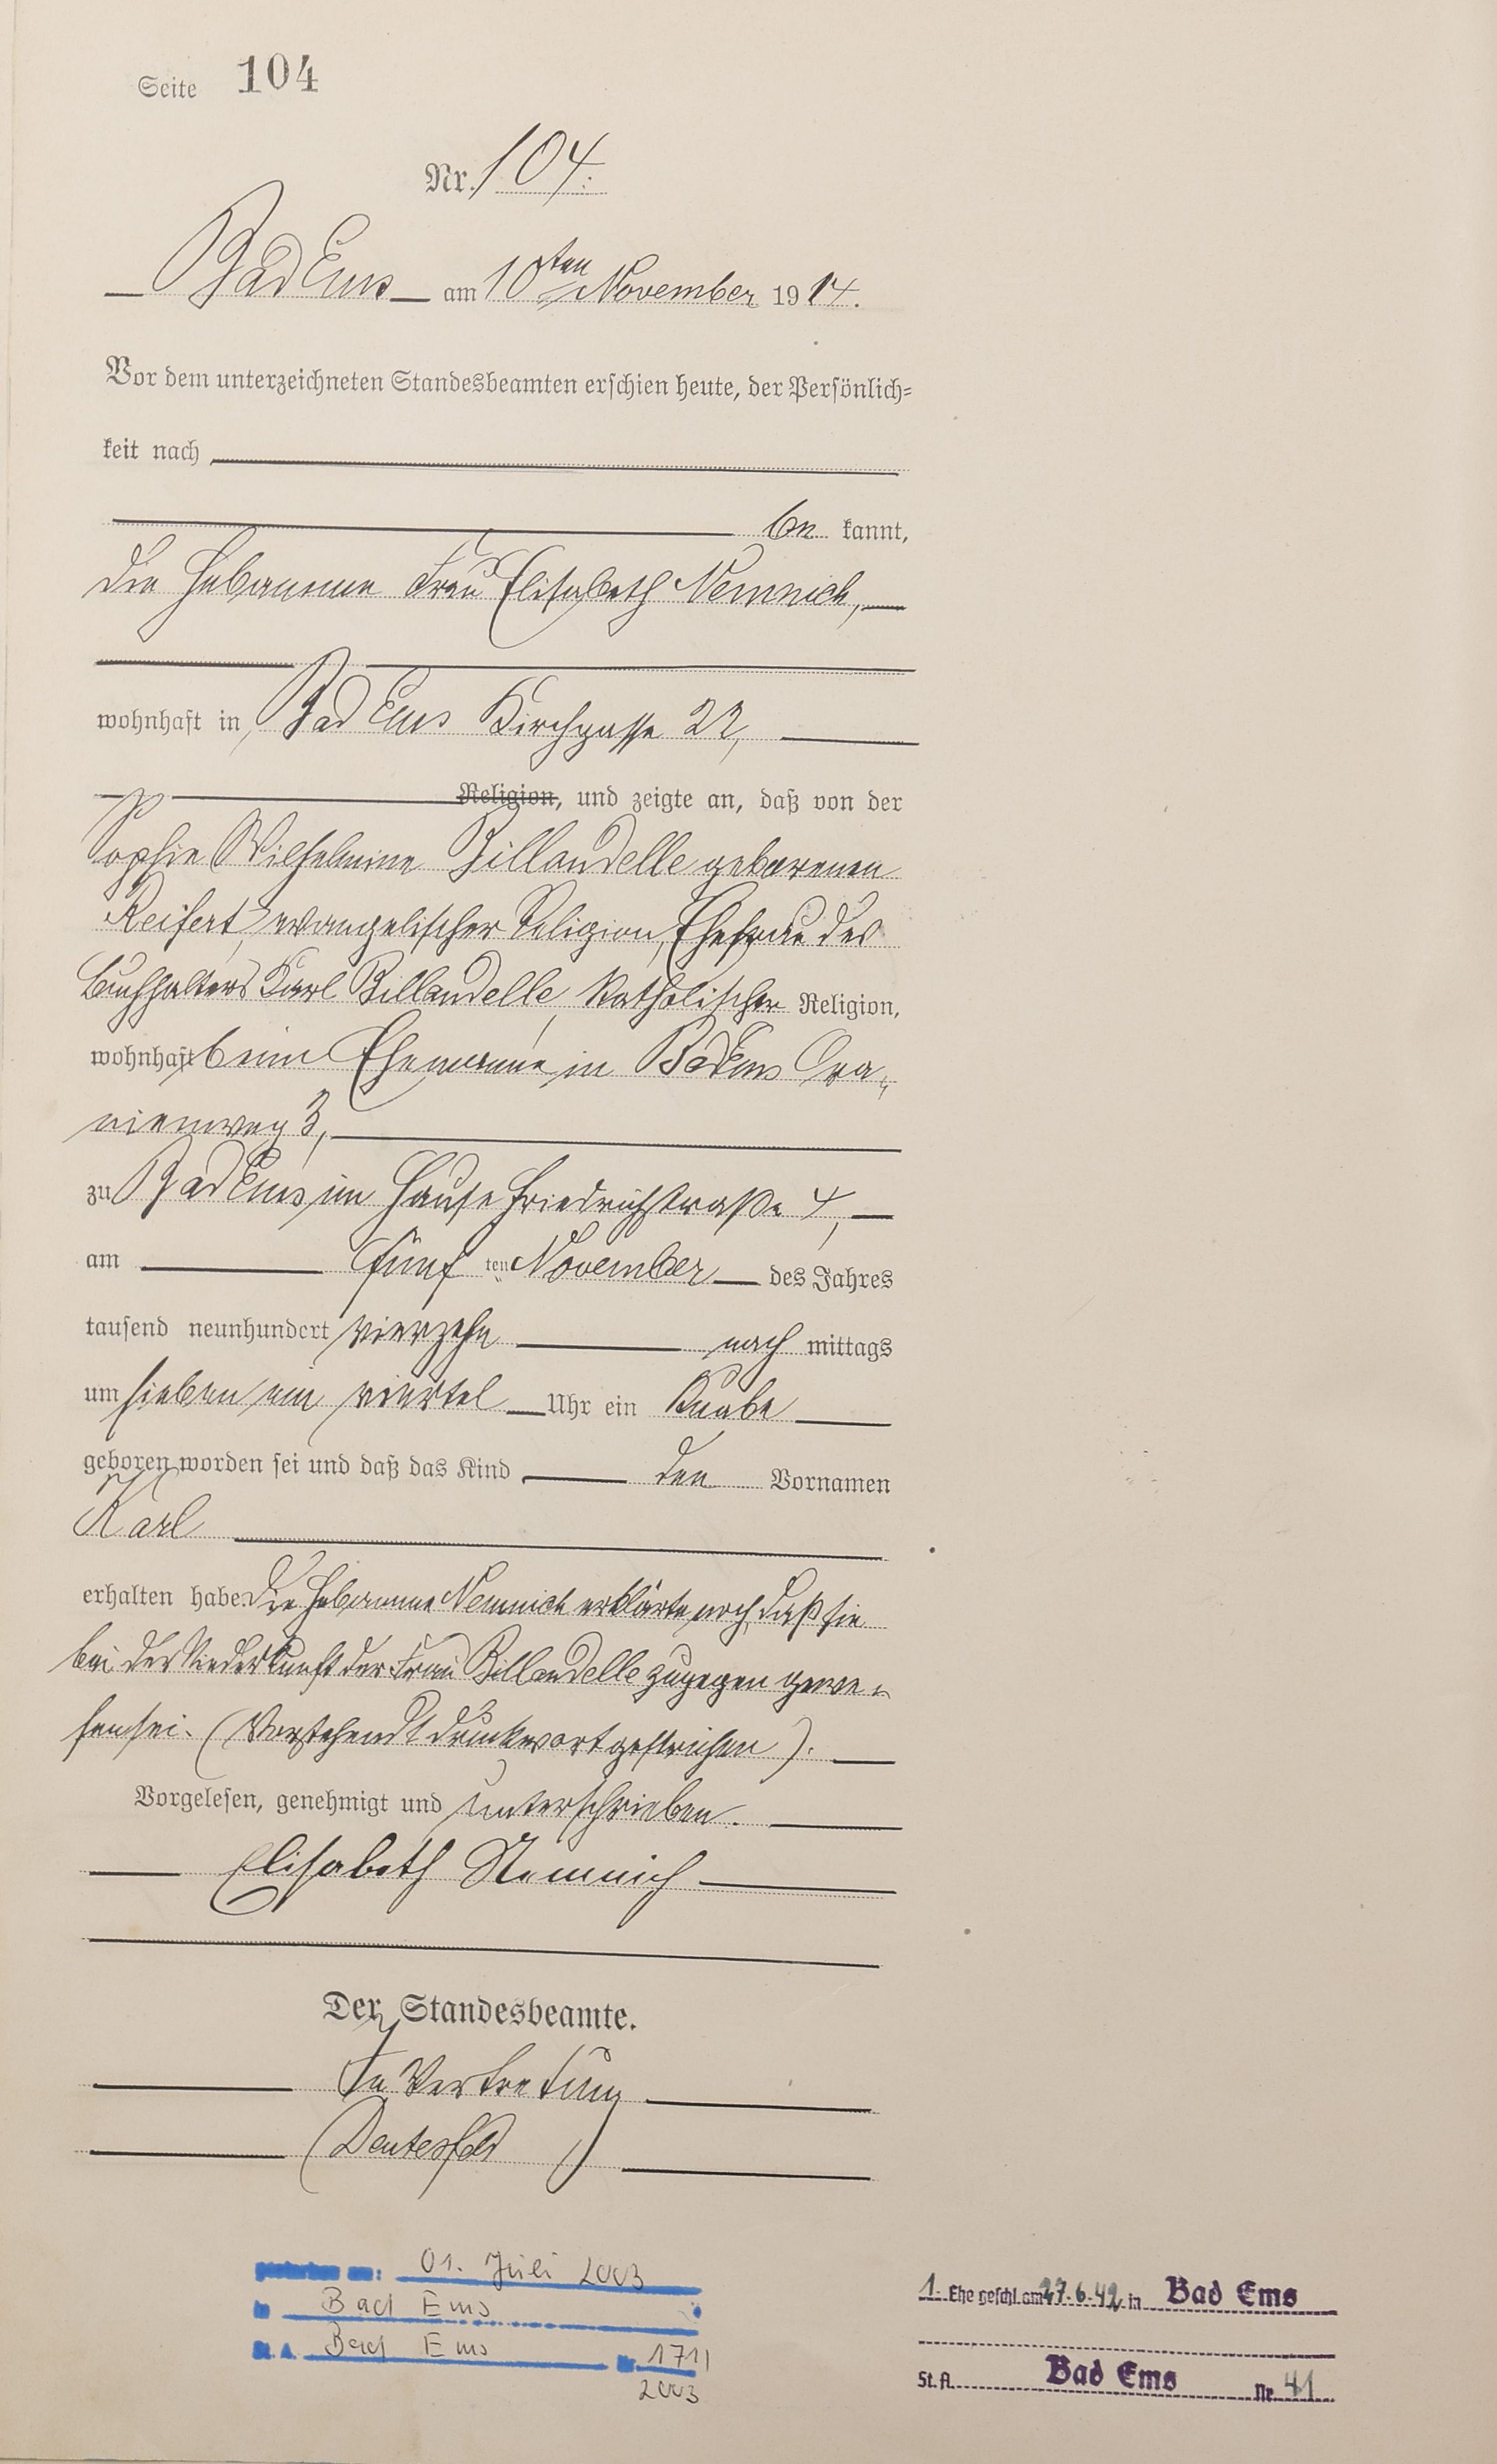 Seite 104
Nr. 104.
Bad Ems am 10ten November 1914.
Vor dem unterzeichneten Standesbeamten erschien heute, der Persönlich=
keit nach
be kannt,
die Hebamme Frau Elisabeth Nemnich,
wohnhaft in Bad Ems Kirchgasse 22,
Religion, und zeigte an, daß von der
Sophie Wilhelmine Billaudelle geborenen
Reifert, evangelischer Religion, Ehefrau des
Buchhalters Karl Billaudelle, katholischer Religion,
wohnhaft beim Ehemanne in Bad Ems Ora-
nienweg 3,
zu Bad Ems im Hause Friedrichstraße 4,
am fünf ten November des Jahres
tausend neunhundert vierzehn nach mittags
um sieben ein viertel Uhr ein Knabe
geboren worden sei und daß das Kind den Vornamen
Karl
erhalten habe. Die Hebamme Nemnich erklärte noch, daß sie
bei der Niederkunft der Frau Billaudelle zugegen gewe-
sen sei. (Vorstehend 1 Druckwort gestrichen).
Vorgelesen, genehmigt und unterschrieben.
Elisabeth Nemnich
Der Standesbeamte.
In Vertretung
gestorben am: 01. Juli 2003
in Bad Ems
St. A. Bad Ems Nr. 171/
2003
1. Ehe geschl. am 27.6.42 in Bad Ems
St. A. Bad Ems Nr. 41